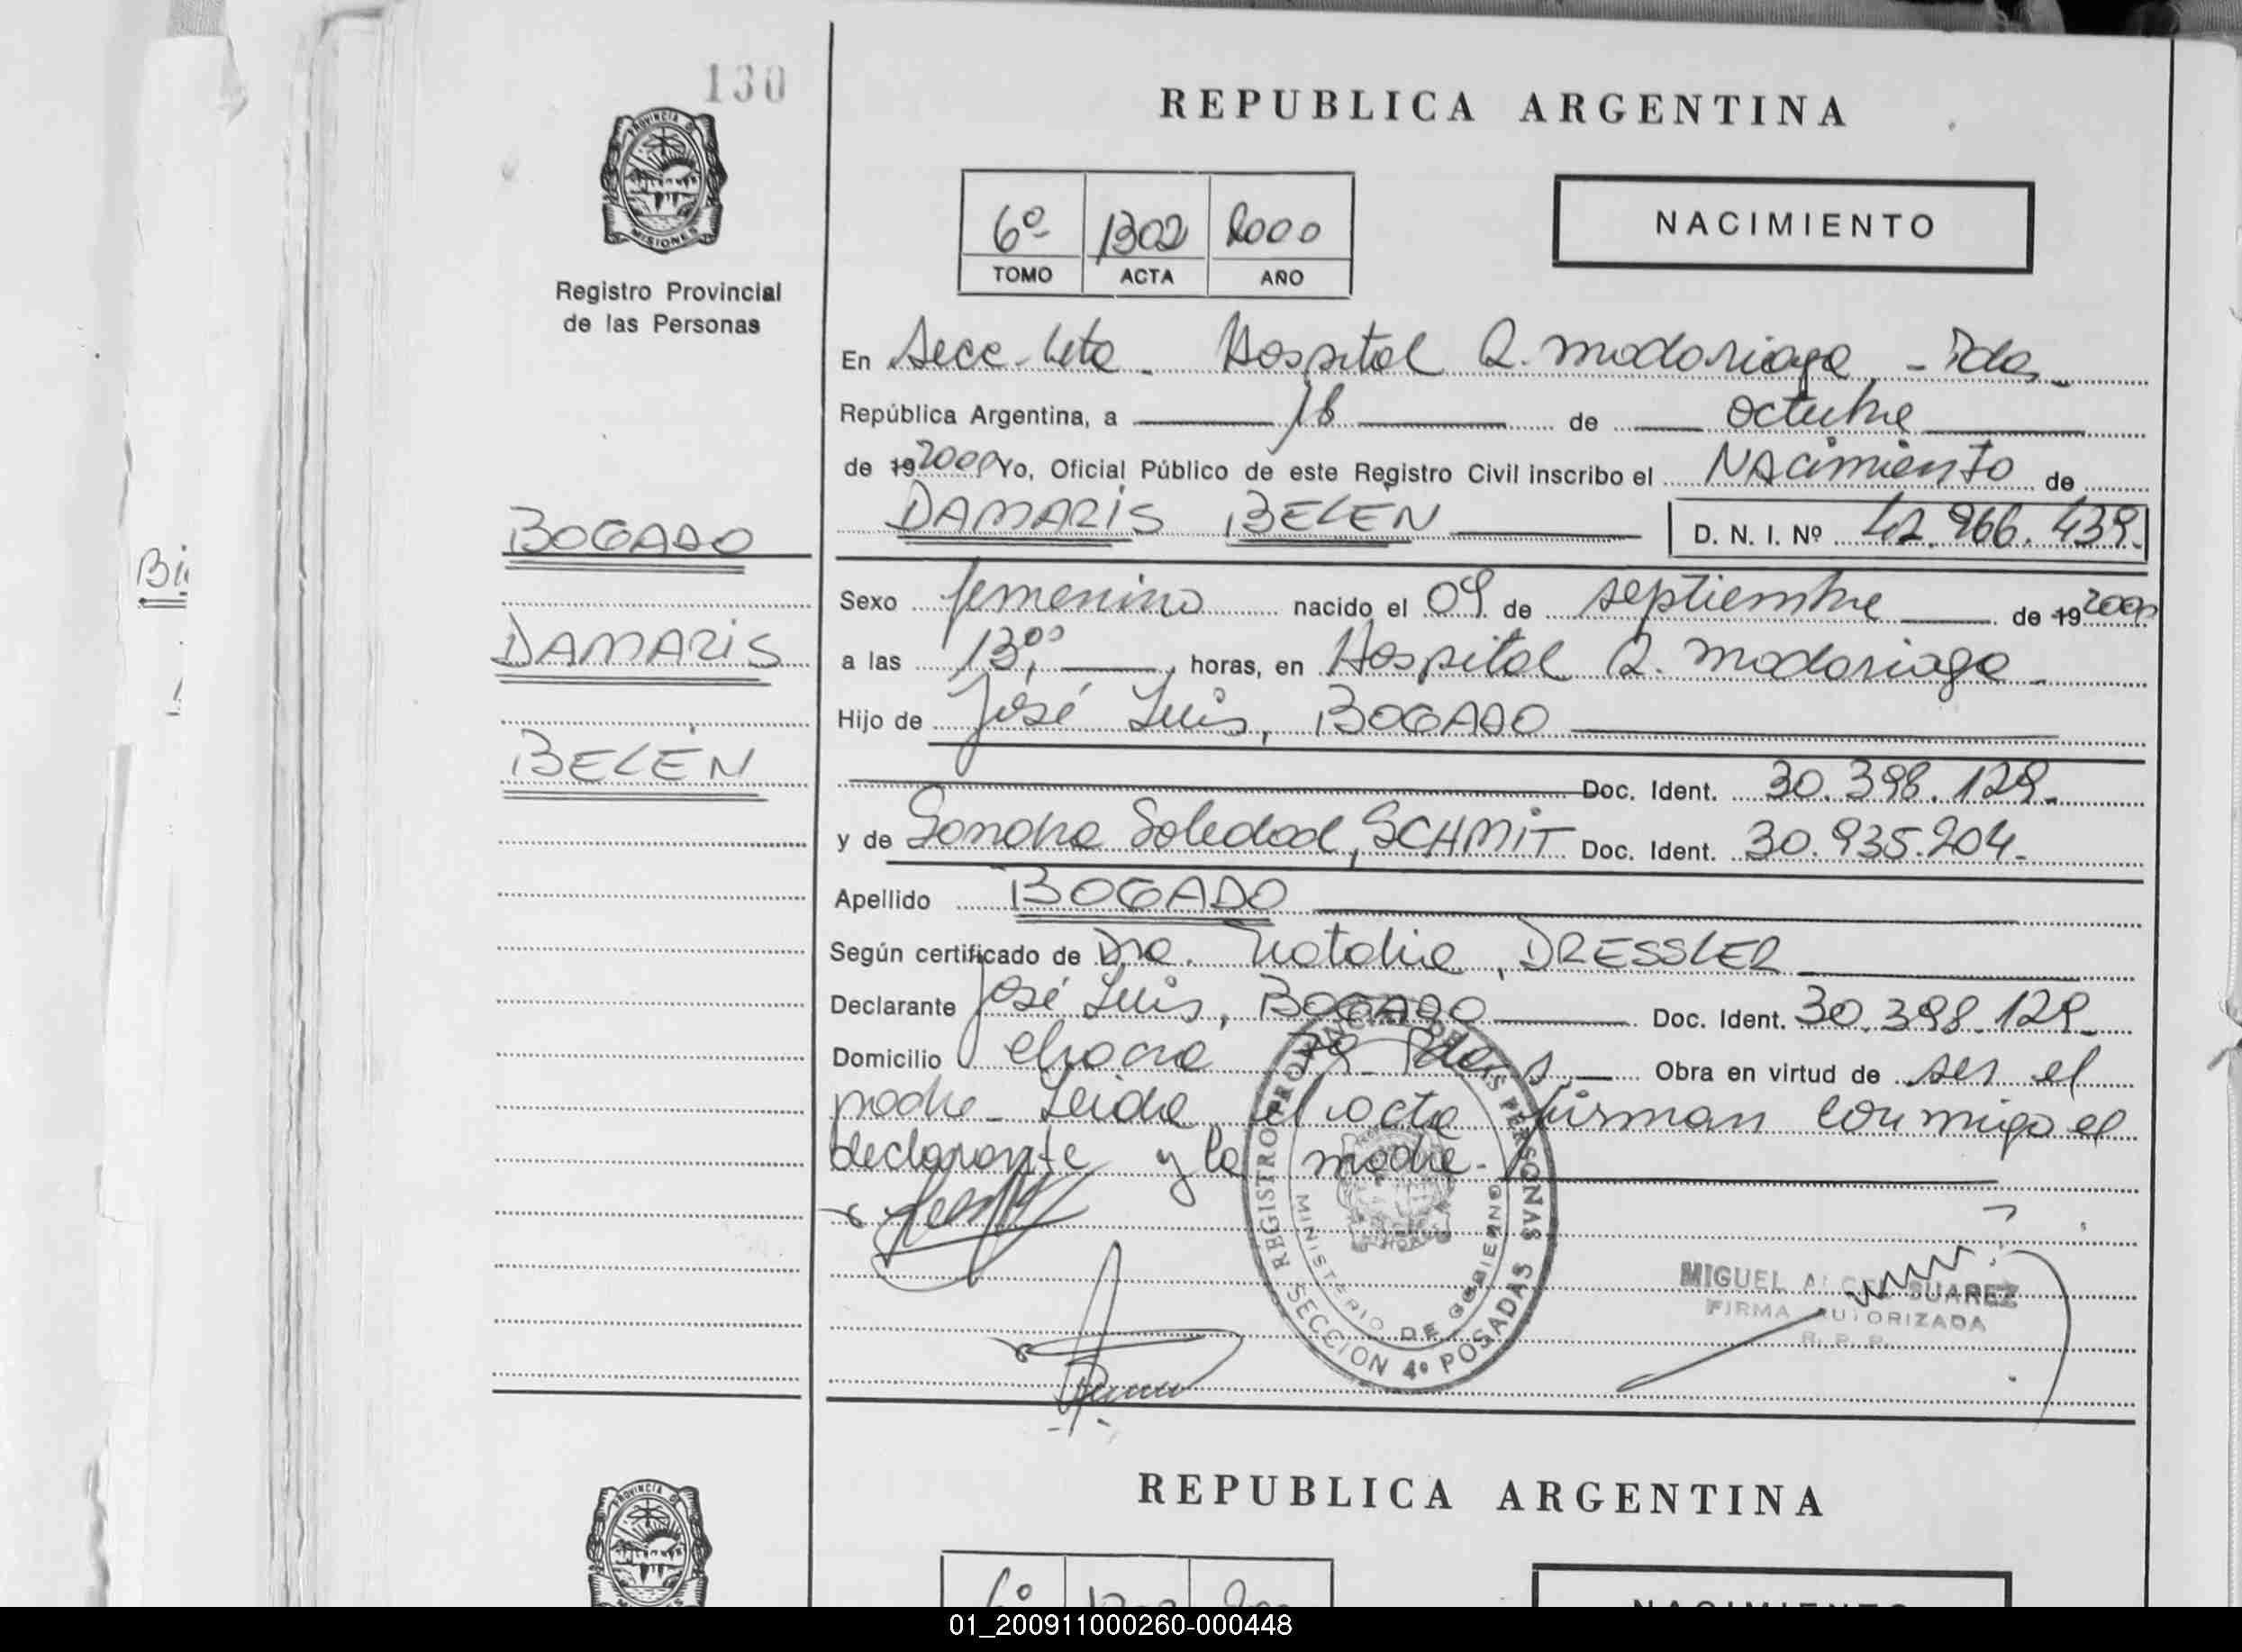 130
PROVINCIA DE
MISIONES
Registro Provincial
de las Personas
REPUBLICA ARGENTINA
6º 1302 2000
TOMO ACTA AÑO
NACIMIENTO
En Secc. 4ta - Hospital R. Madariaga - Pdas -
República Argentina, a 18 de octubre
de 19 2000 Yo, Oficial Público de este Registro Civil inscribo el Nacimiento de
DAMARIS BELÉN D. N. I. Nº 42.966.439.
BOGADO
DAMARIS
BELÉN
Sexo femenino nacido el 09 de septiembre de 19 2000
a las 13,00 horas, en Hospital R. Madariaga -
Hijo de José Luis, BOGADO
Doc. Ident. 30.398.129.
y de Sandra Soledad, SCHMIT Doc. Ident. 30.935.204.
Apellido BOGADO
Según certificado de Dra. Natalia, DRESSLER
Declarante José Luis, BOGADO Doc. Ident. 30.398.129.
Domicilio Chacra Pdas Obra en virtud de ser el
padre - Leida el acta firman conmigo el
declarante y la madre.
REGISTRO PROVINCIAL DE LAS PERSONAS
MINISTERIO DE GOBIERNO
SECCION 4º POSADAS
MIGUEL ANGEL SUAREZ
FIRMA AUTORIZADA
R. P. P.
Bi
PROVINCIA DE
MISIONES
REPUBLICA ARGENTINA
6º
NACIMIENTO
01_200911000260-000448